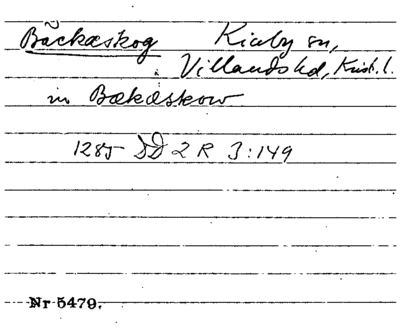 Bäckaskog Kiaby sn,
Villands hd, Krist. l.
in Bækæskow
1285 DD 2 R 3:149
Nr 5479.